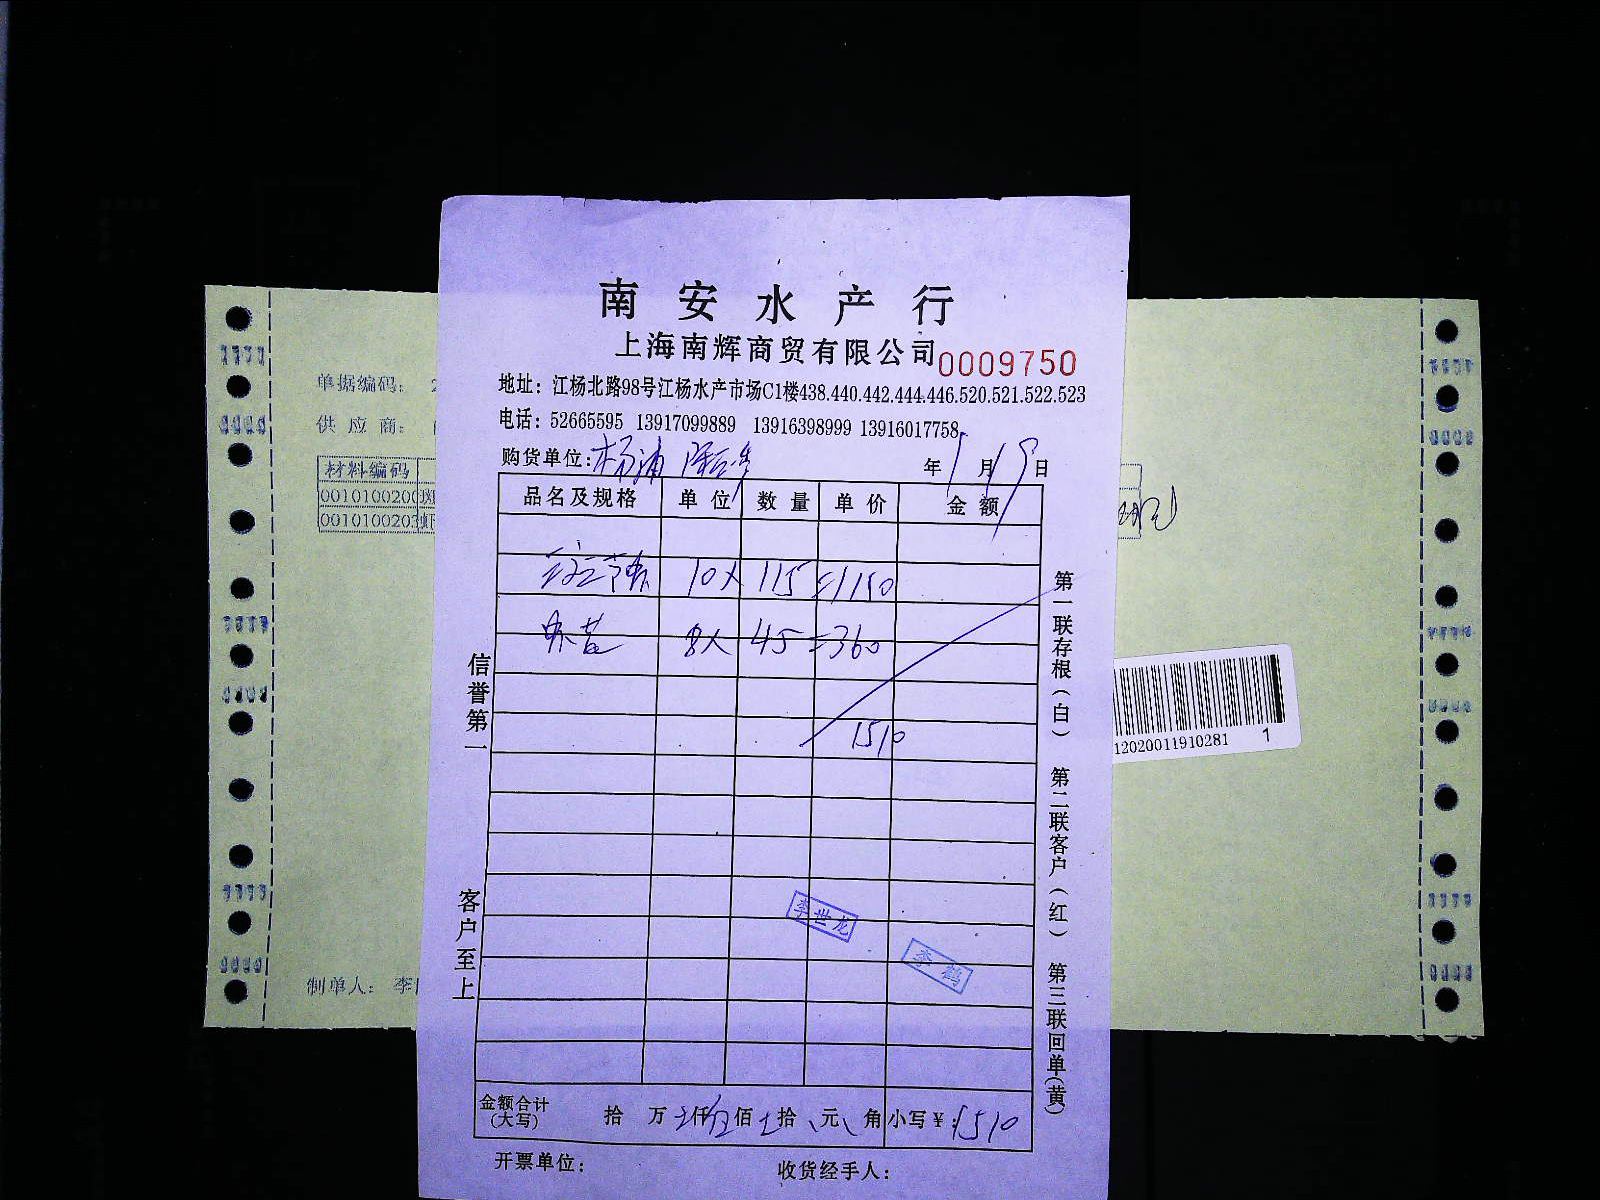 南安水产行
上海南辉商贸有限公司 0009750
地址：江杨北路98号江杨水产市场C1楼438.440.442.444.446.520.521.522.523
电话：52665595 13917099889 13916398999 13916017758
购货单位：杨浦 年 1 月 19 日
品名及规格 单位 数量 单价 金额
10× 115 =1150
虾 8× 45 =360
1510
信誉第一
客户至上
第一联存根（白） 第二联客户（红） 第三联回单（黄）
李世龙
李鹤
金额合计（大写） 拾 万 仟 伍 佰 拾 元 角 小写￥：1510
开票单位： 收货经手人：
单据编码： 2
供应商：
材料编码
0010100200
0010100203 虾
制单人： 李
12020011910281 1